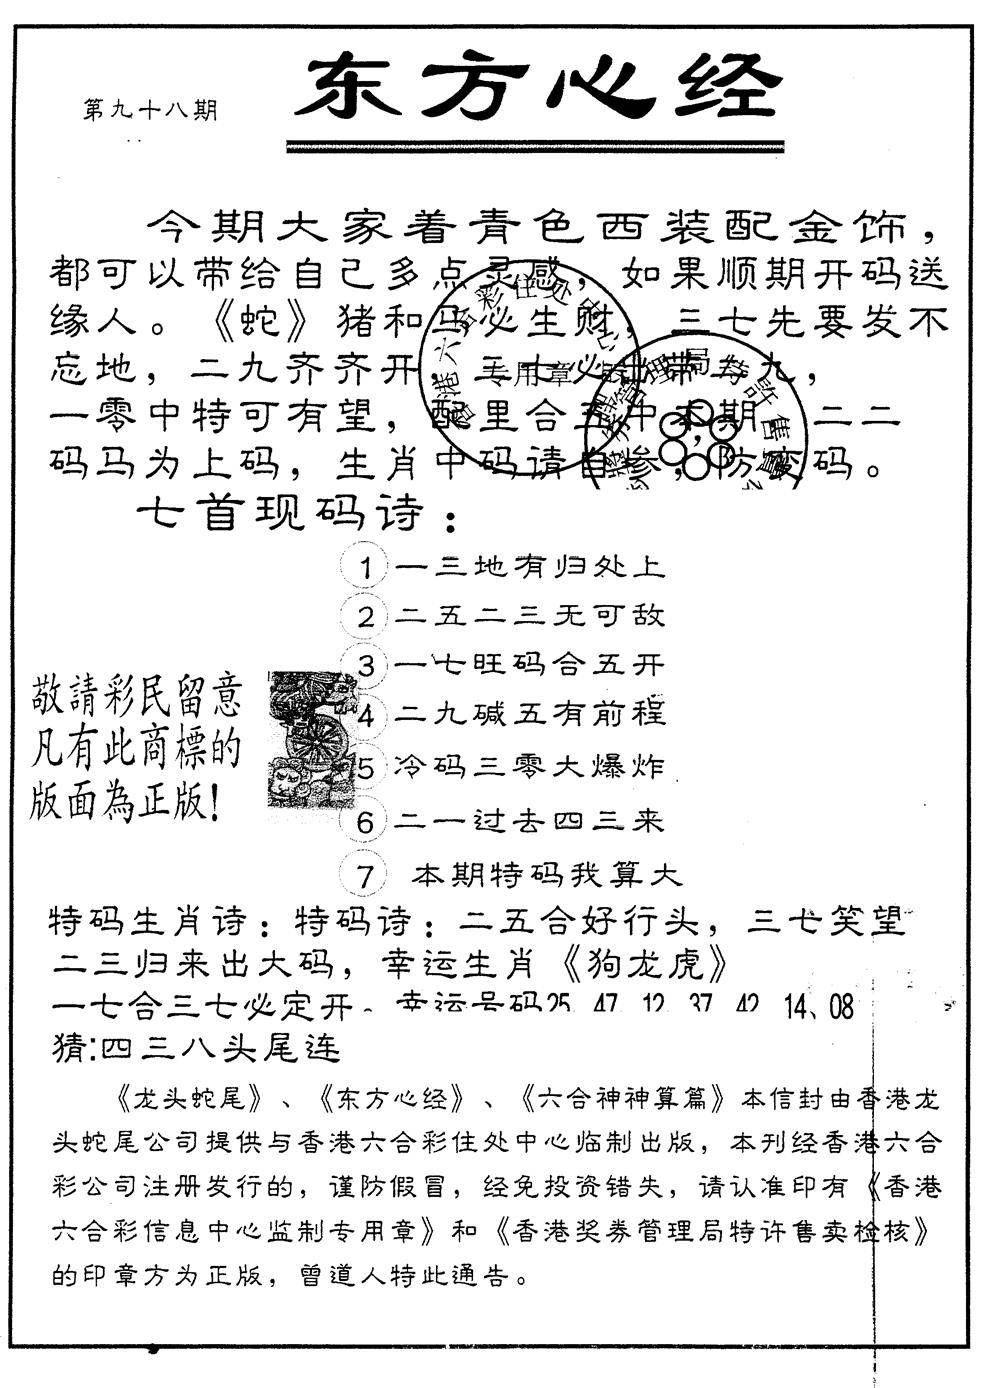 第九十八期
东方心经
今期大家着青色西装配金饰，
都可以带给自己多点灵感，如果顺期开码送
缘人。《蛇》猪和马必生财，三七先要发不
忘地，二九齐齐开，三七必出带二九，
一零中特可有望，配里合五中本期，二二
码马为上码，生肖中码请自参，防变码。
专用章
七首现码诗：
1 一三地有归处上
2 二五二三无可敌
3 一七旺码合五开
4 二九碱五有前程
5 冷码三零大爆炸
6 二一过去四三来
7 本期特码我算大
敬請彩民留意
凡有此商標的
版面為正版！
特码生肖诗：特码诗：二五合好行头，三七笑望
二三归来出大码，幸运生肖《狗龙虎》
一七合三七必定开。幸运号码25 47 12 37 42 14、08
猜:四三八头尾连
《龙头蛇尾》、《东方心经》、《六合神神算篇》本信封由香港龙
头蛇尾公司提供与香港六合彩住处中心临制出版，本刊经香港六合
彩公司注册发行的，谨防假冒，经免投资错失，请认准印有《香港
六合彩信息中心监制专用章》和《香港奖券管理局特许售卖检核》
的印章方为正版，曾道人特此通告。